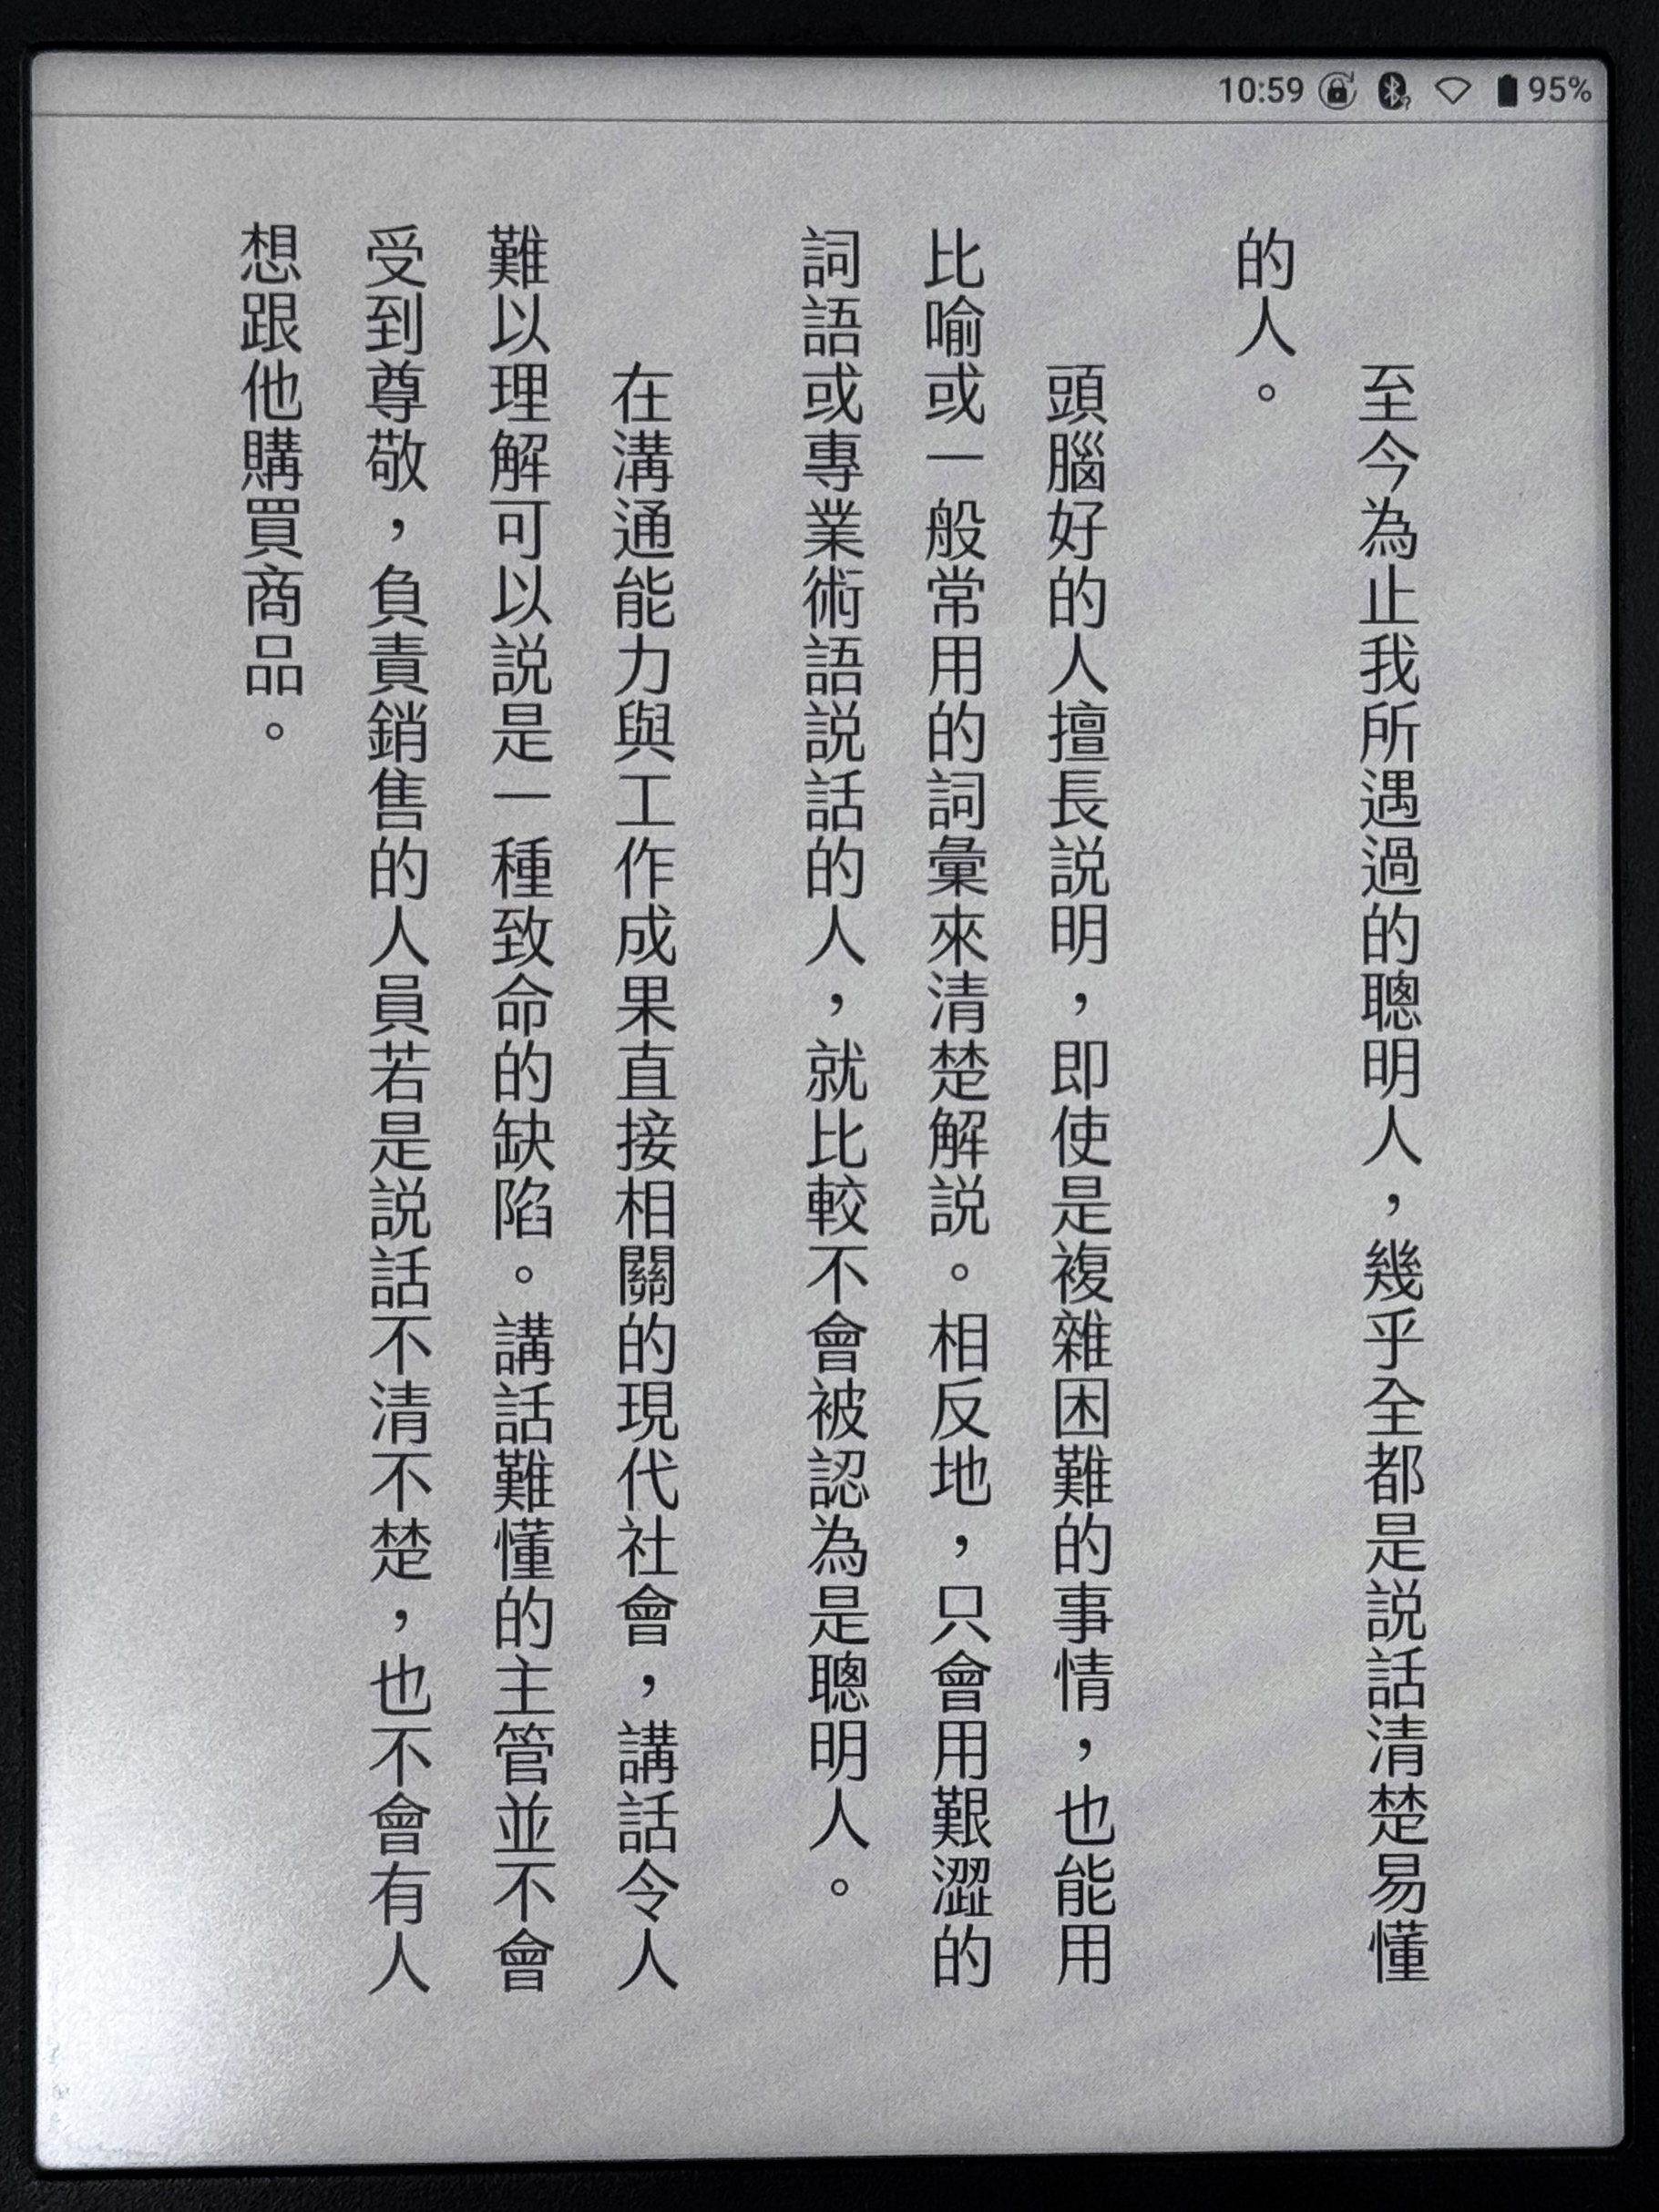 10:59 95%
至今為止我所遇過的聰明人，幾乎全都是説話清楚易懂
的人。
頭腦好的人擅長説明，即使是複雜困難的事情，也能用
比喻或一般常用的詞彙來清楚解説。相反地，只會用艱澀的
詞語或專業術語説話的人，就比較不會被認為是聰明人。
在溝通能力與工作成果直接相關的現代社會，講話令人
難以理解可以説是一種致命的缺陷。講話難懂的主管並不會
受到尊敬，負責銷售的人員若是説話不清不楚，也不會有人
想跟他購買商品。